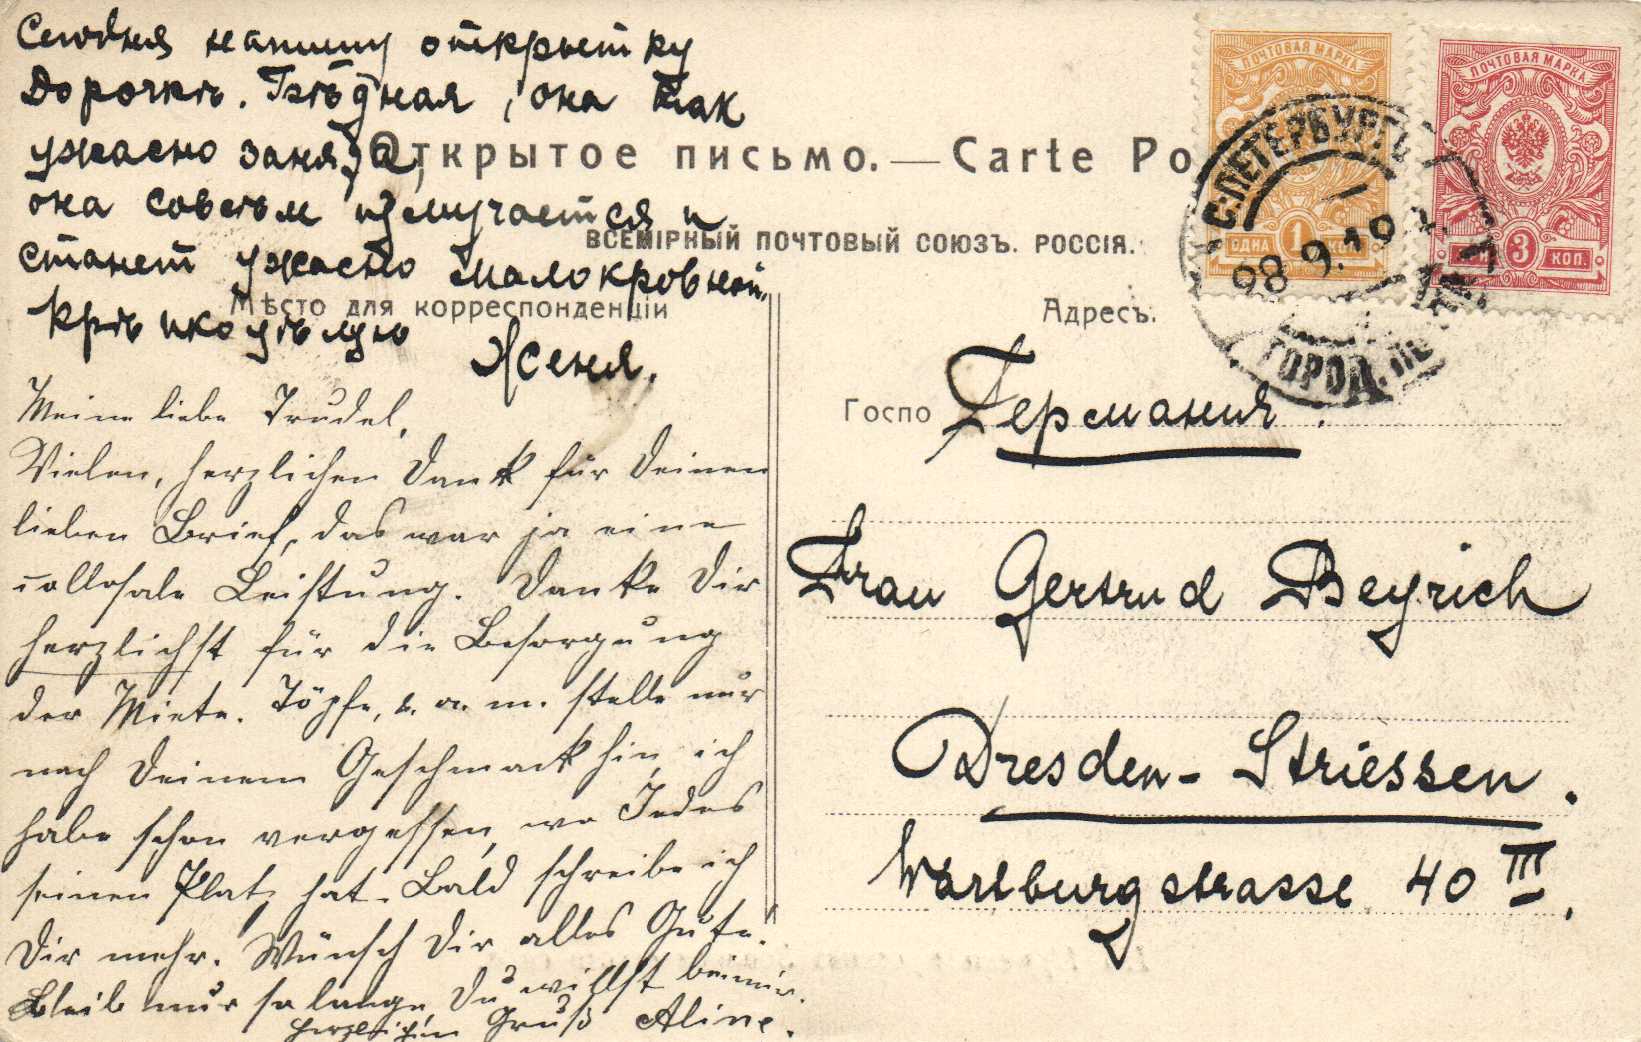 Сегодня напишу открытку
Дорочкѣ. Бѣдная, она так
ужасно занята,
она совсѣм измучается и
станет ужасно малокровной.
Крѣпко цѣлую
Женя.
Открытое письмо. — Carte Po
ВСЕМІРНЫЙ ПОЧТОВЫЙ СОЮЗЪ. РОССІЯ.
Мѣсто для корреспонденціи
Meine liebe Trudel,
Vielen, herzlichen Dank für Deinen
lieben Brief, das war ja eine
collosale Leistung. Danke Dir
herzlichst für die Besorgung
der Miete. Töpfe, u. a. m. stelle nur
nach Deinem Geschmack hin, ich
habe schon vergessen, wo Jedes
seinen Platz hat. Bald schreibe ich
Dir mehr. Wünsch Dir alles Gute.
Bleib nur so lange, Du willst bei mir.
Herzlichen Gruß Aline.
ПОЧТОВАЯ МАРКА
ОДНА 1 КОП.
ПОЧТОВАЯ МАРКА
ТРИ 3 КОП.
С.ПЕТЕРБУРГЪ
9.19
ГОРОД.
Адресъ.
Госпо
Германия.
Frau Gertrud Beyrich
Dresden-Striessen.
Wartburgstrasse 40 III.